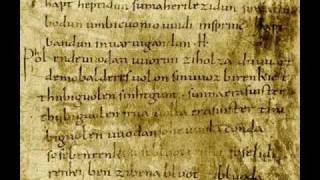 hapt heptidun sumaherilezidun suma
bodun umbicuonio uuidi insprinc hapt
bandun inuar uigandun· H·
Phol endeuuodan uuorun ziholza du uuart
demobalderes uolon sinuuoz birenkict
thubiguolen sinhtgunt · sunnaerasuister
thubiguolen friia uolla erasuister thu
biguolen uuodan conda
sosebenrenki soselidi
renki ben zibena bluot zibluoda